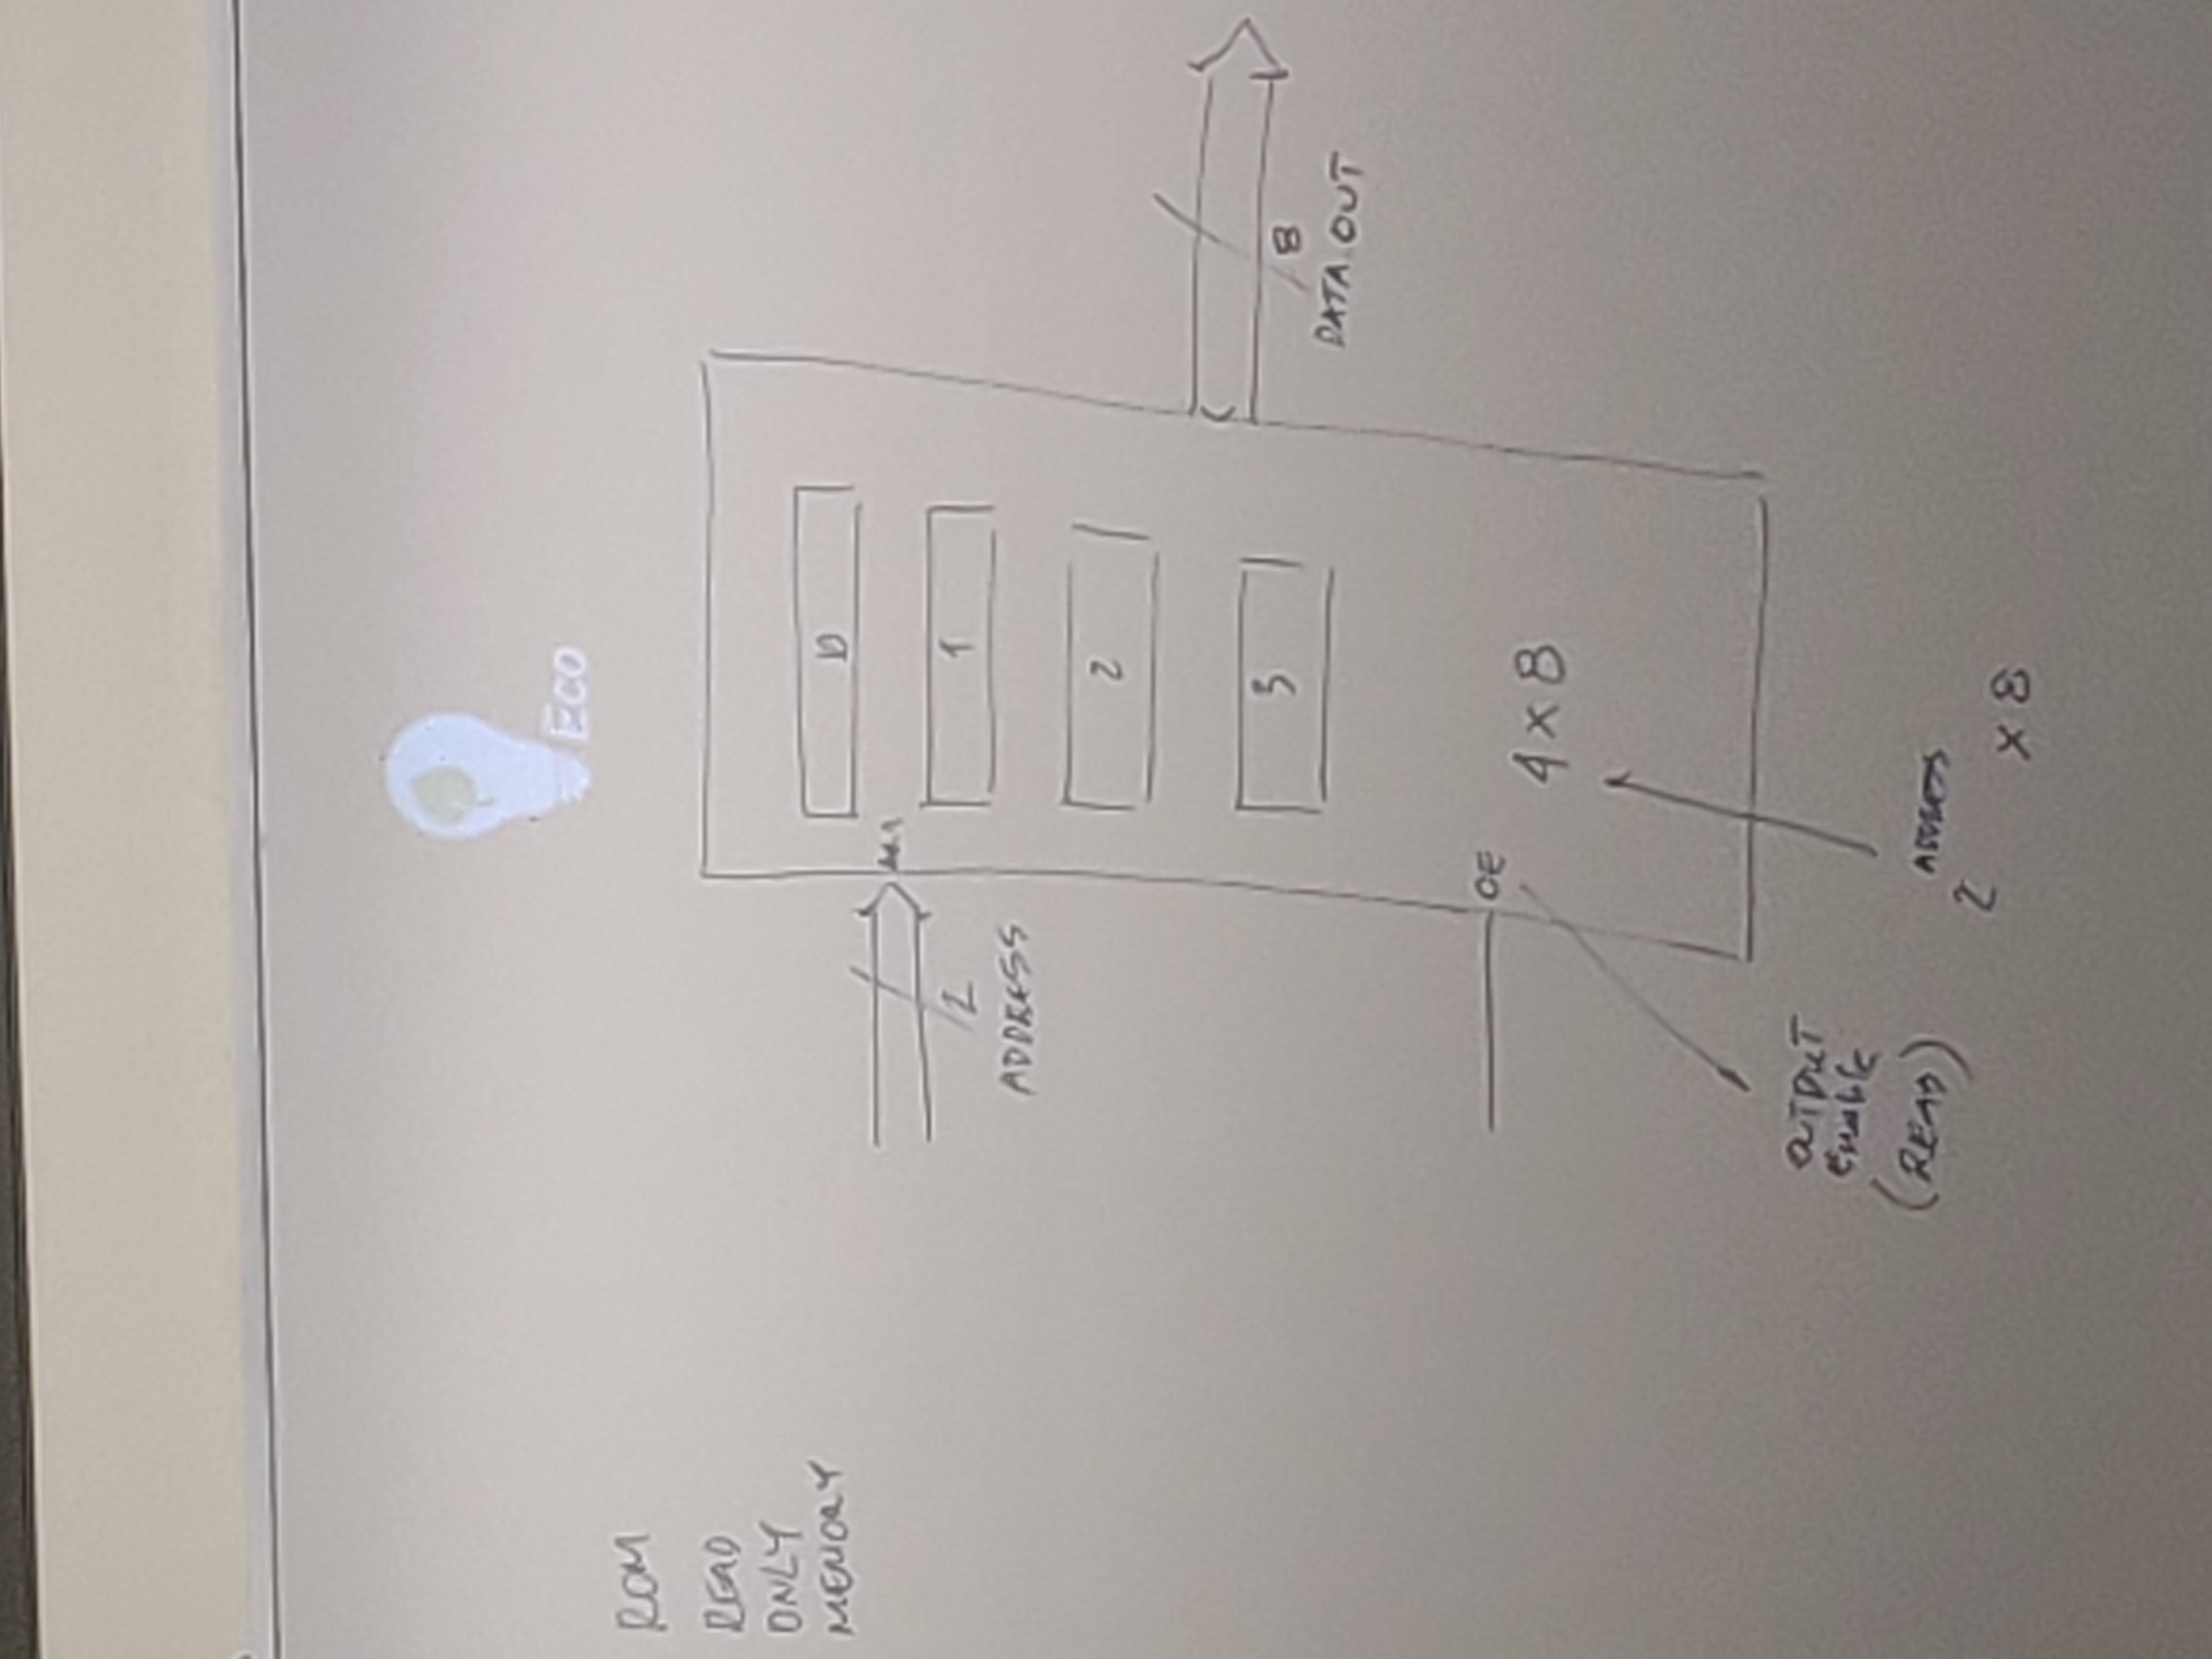 Eco
ROM
READ
ONLY
MEMORY
0
1
2
ADDRESS
2
3
8
DATA OUT
OE
4 x 8
OUTPUT
Enable
(READ)
ADDRESS
2
x 8